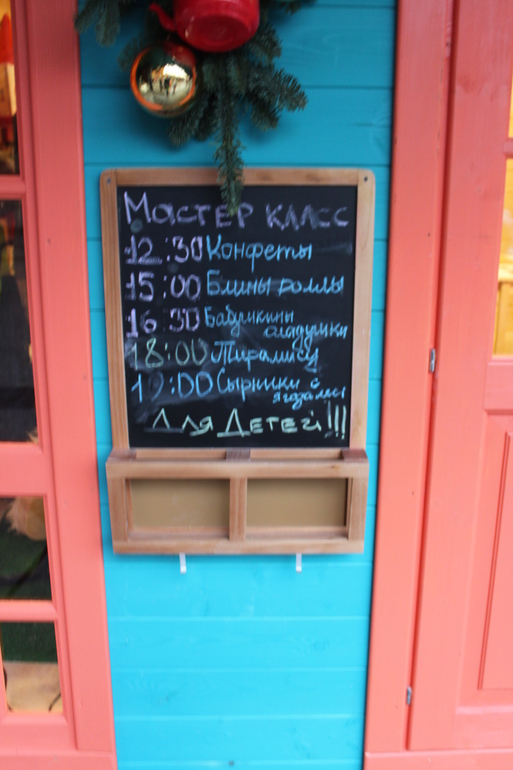 Мастер класс
12:30 Конфеты
15:00 Блины роллы
16:30 Бабушкины
оладушки
18:00 Тирамису
19:00 Сырники с
ягодами
Для Детей!!!